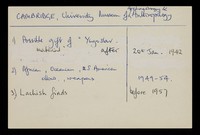 Archaeology &
CAMBRIDGE, University Museum of Anthropology
1) Possible gift of "Yugoslav
material after 20th Jan. 1942
2) African, Oceanian, & S. American
weapons 1949-54.
3) Lachish finds before 1957